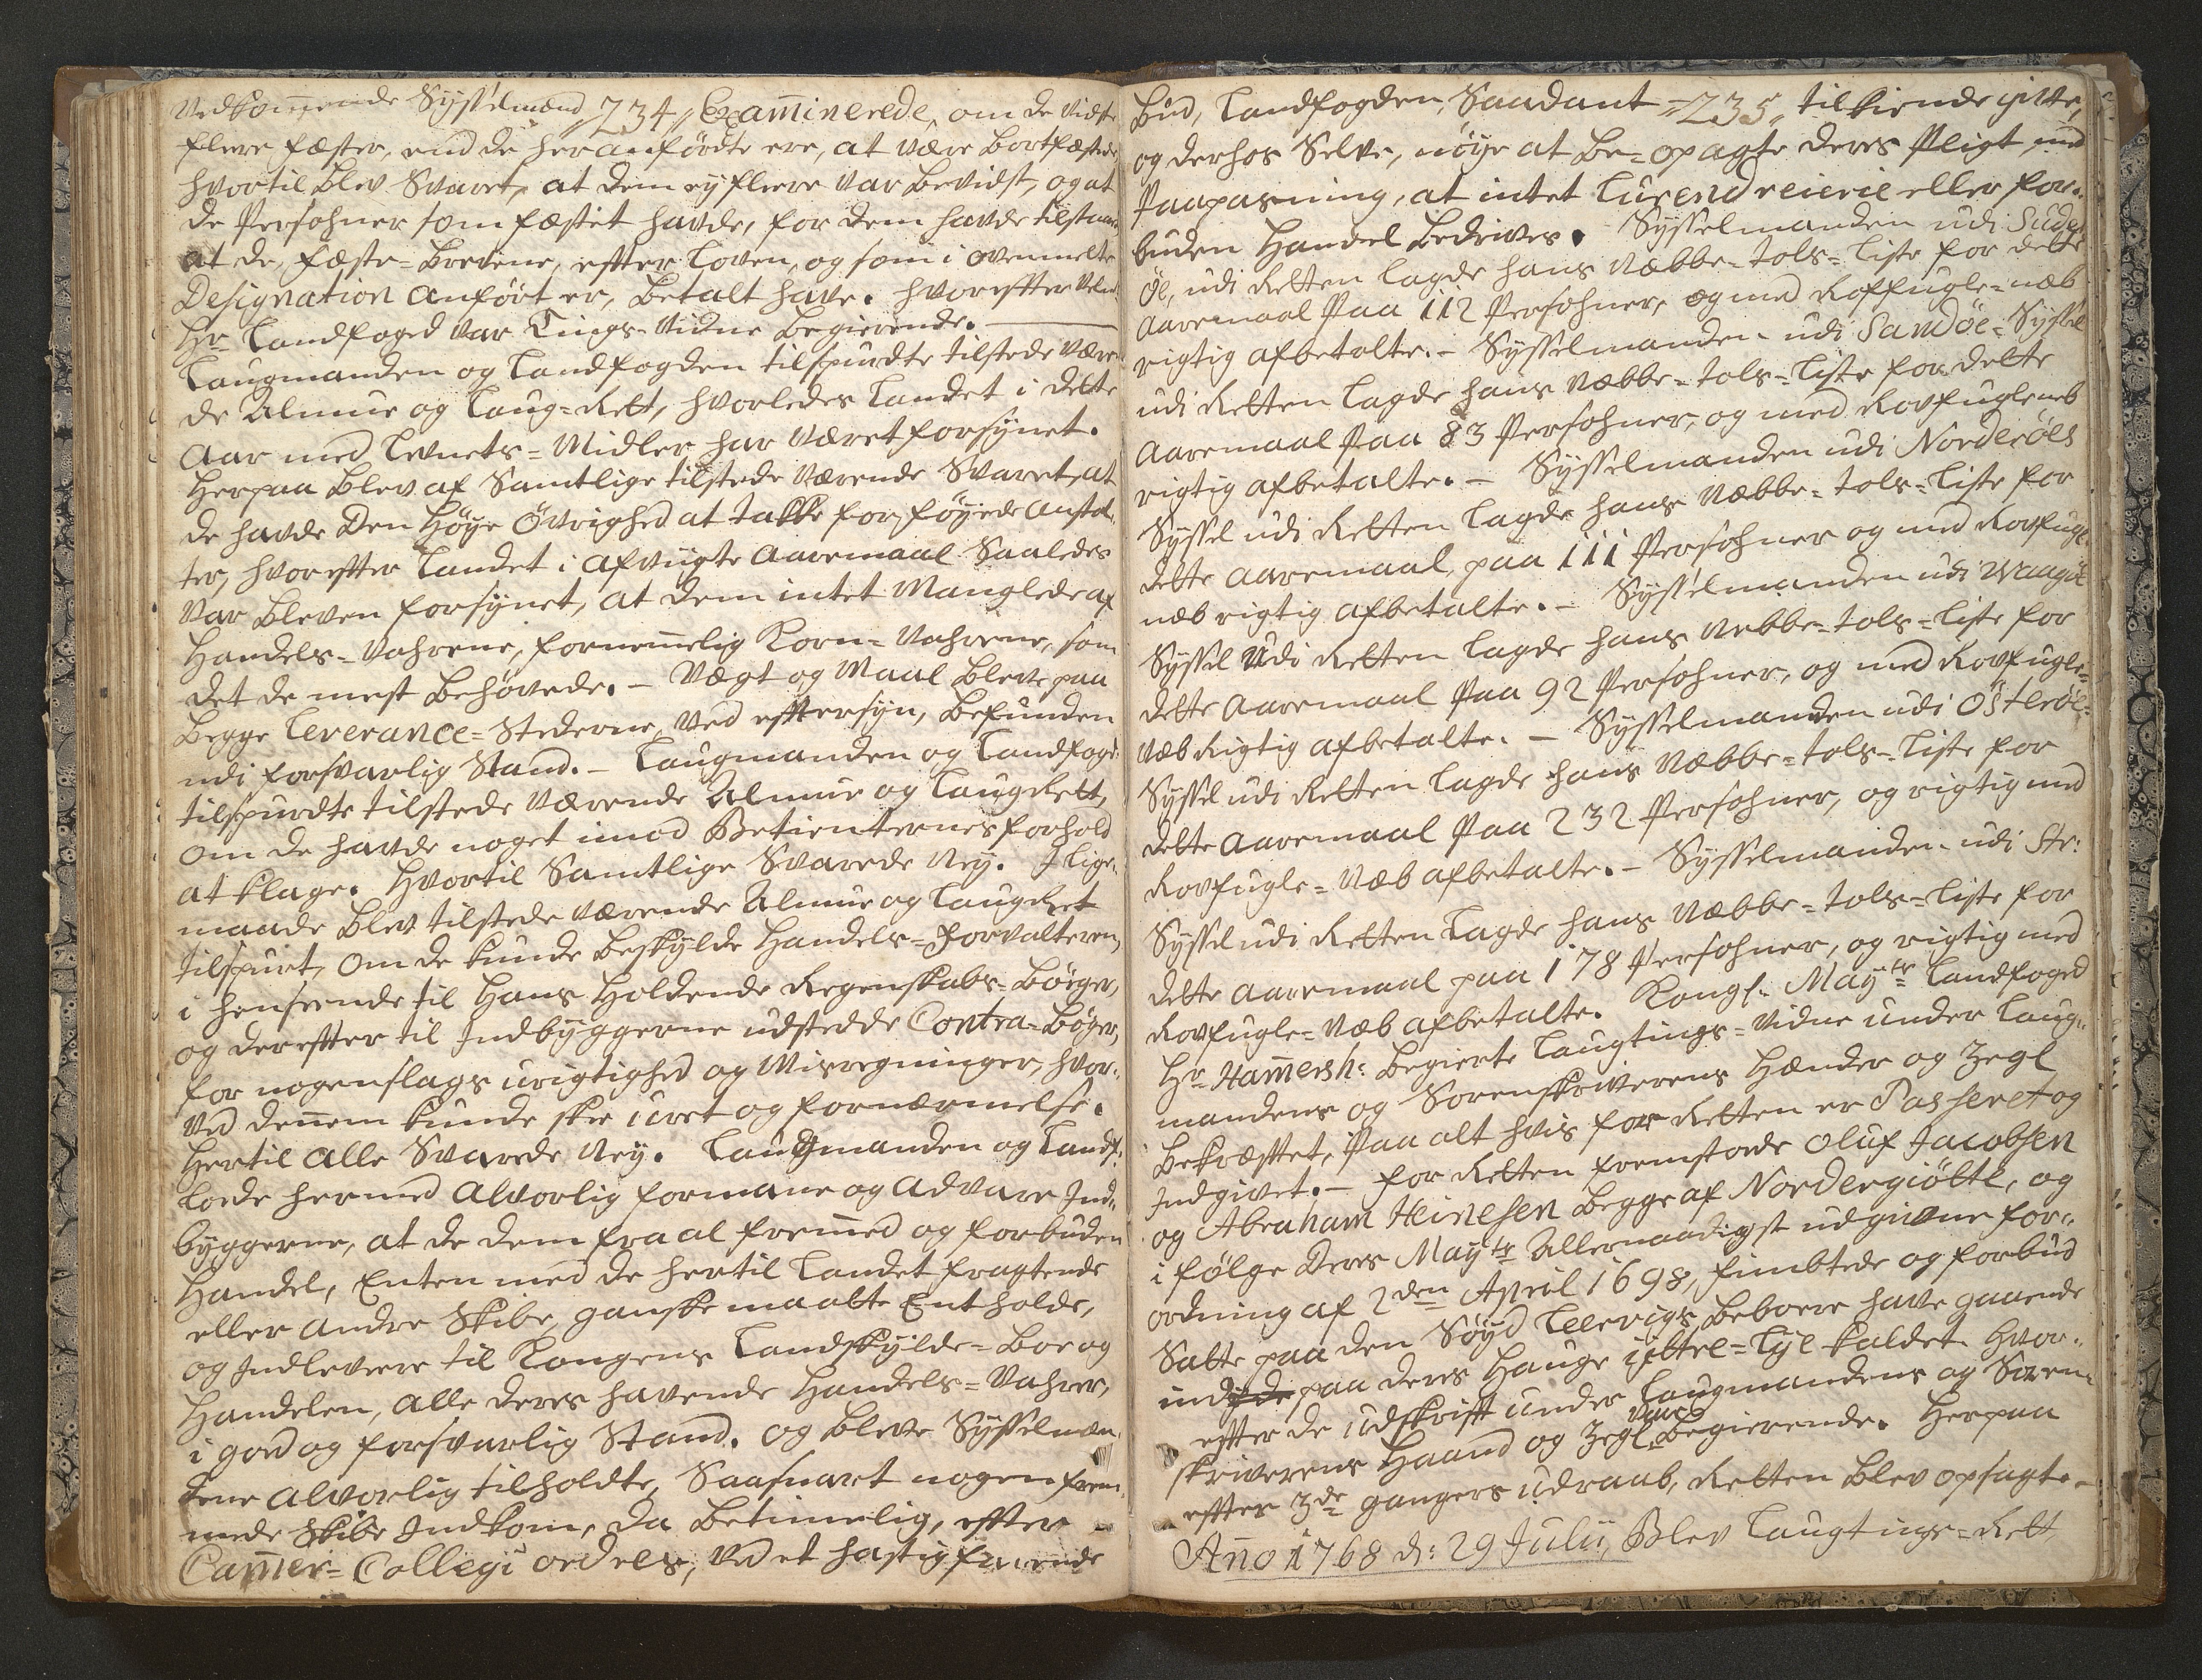 Vedkom̅ende Sysselmænd „234„ Exam̅inerede, om de vidste
fleere fæster, end de her anförte ere, at være bortfæstede,
hvortil blev Svaret, at dem ey fleere var bevidst, og at
de Persohner som fæstet havde, for dem havde tilstaaet
at de, fæste-Brevene, effter Loven, og som i ovenmelte
Designation anfört er, betalt have. hvoreffter velb:
Hr Landfoged var Tings-Vidne begierende.
Laugmanden og Landfogden tilspurdte tilstede være-
de Almue og Laug-Rett, hvorledes Landet i dette
Aar med Levnets-Midler har været forsynet.
Herpaa blev af Samtlige tilstede værende Svaret, at
de havde Den Höye Övrighed at takke for föyede Anstal-
ter, hvoreffter Landet i afvigte Aaremaal Saaledes
var bleven forsynet, at dem intet Manglede af
Handels-Vahrene, fornem̅elig Korn-Vahrene, som
det de mest behövede. – Vægt og Maal bleve paa
begge Leverance-Stederne, ved effttersyn, befunden
udi forsvarlig Stand. – Laugmanden og Landfogd:
tilspurdte tilstede værende Almue og LaugRett,
om de havde noget imod Betienternes forhold
at klage. Hvortil Samtlige Svarede Ney. I lige-
maade blev tilstede værende Almue og LaugRet
tilspurt, om de kunde beskylde Handels-Forvalteren,
i henseende til Hans Holdende Regenskabs-Böger,
og dereffter til Indbyggerne udstedde Contra-Böger,
for nogenslags urigtighed og Misregninger, hvor-
ved den̅em kunde skee uret og fornærmelse.
Hertil alle Svarede Ney. Laugmanden og Landf:
lode hermed alvorlig formane og advare Ind-
byggerne, at de dem fra al frem̅ed og forbuden
Handel, Enten med de hertil Landet fragtende
eller andre Skibe, ganske maatte Entholde,
og Indlevere til Kongens Landskylde-Boe og
Handelen, alle deres havende Handels-Vahrer,
i god og forsvarlig Stand. og bleve Sysselmæn-
dene alvorlig tilholdte, Saasnart nogen frem-
mede Skibe Indkom, da betimelig, effter
Cam̅er-Collegi ordres, ved et hastig farende
Bud, Landfogden, Saadant „235„ tilkiende give,
og derhos Selve, nöye at be-opagte deres Pligt med
Paapasning, at intet Lurendreierie eller for-
buden Handel bedrives. Sysselmanden udi Suder
Öe, udi Retten Lagde hans Næbbe-Tols-Liste for dette
Aaremaal Paa 112 Persohner, og med Roffugle-næb
rigtig afbetalte. – Sysselmanden udi Sandöe-Syssel
udi Retten Lagde hans Næbbe-tols-Liste for dette
Aaremaal Paa 83 Persohner, og med Rovfuglenæb
rigtig afbetalte. – Sysselmanden udi Norderöes
Syssel udi Retten Lagde hans Næbbe-tols-Liste for
dette Aaremaal, paa 111 Persohner og med Rovfugle-
næb rigtig afbetalte. – Sysselmanden udi Waagöe
Syssel udi Retten Lagde hans Nebbe-tols-Liste for
dette Aaremaal Paa 92 Persohner, og med Rovfugle-
Næb Rigtig afbetalte. – Sysselmanden udi Österöe-
Syssel udi Retten Lagde hans Næbbe-tols-Liste for
dette Aaremaal Paa 232 Persohner, og rigtig med
Rovfugle-Næb afbetalte. – Sysselmanden udi Str:
Syssel udi Retten Lagde hans Næbbe-tols-Liste for
dette Aaremaal paa 178 Persohner, og rigtig med
Rovfugle-Næb afbetalte. Kongl. Mayts Landfoged
Hr Ham̅ersh: begierte Laugtings-Vidne under Laug-
mandens og Sorenskriverens Hænder og Zegl
bekræfftet, Paa alt hvis for Retten er Passeret og
Indgivet. – for Retten fremstode Oluf Jacobsen
og Abraham Heinesen begge af Nordergiötte, og
i fölge Deres Mayts Allernaadigst udgivne for-
ordning af 2den April 1698, fimbtede og forbud
Satte paa den Söyd Leervigs Beboere have gaaende
ind paa deres Hauge kaldet. hvor-
effter de udskrifft under Laugmandens og Soren-
skriverens Haand og Zegl vare begierende. Herpaa
effter 3de gangers udraab, Retten blev opsagte –
An̅o 1768 d: 29 Julii, Blev Laugtings-Rett